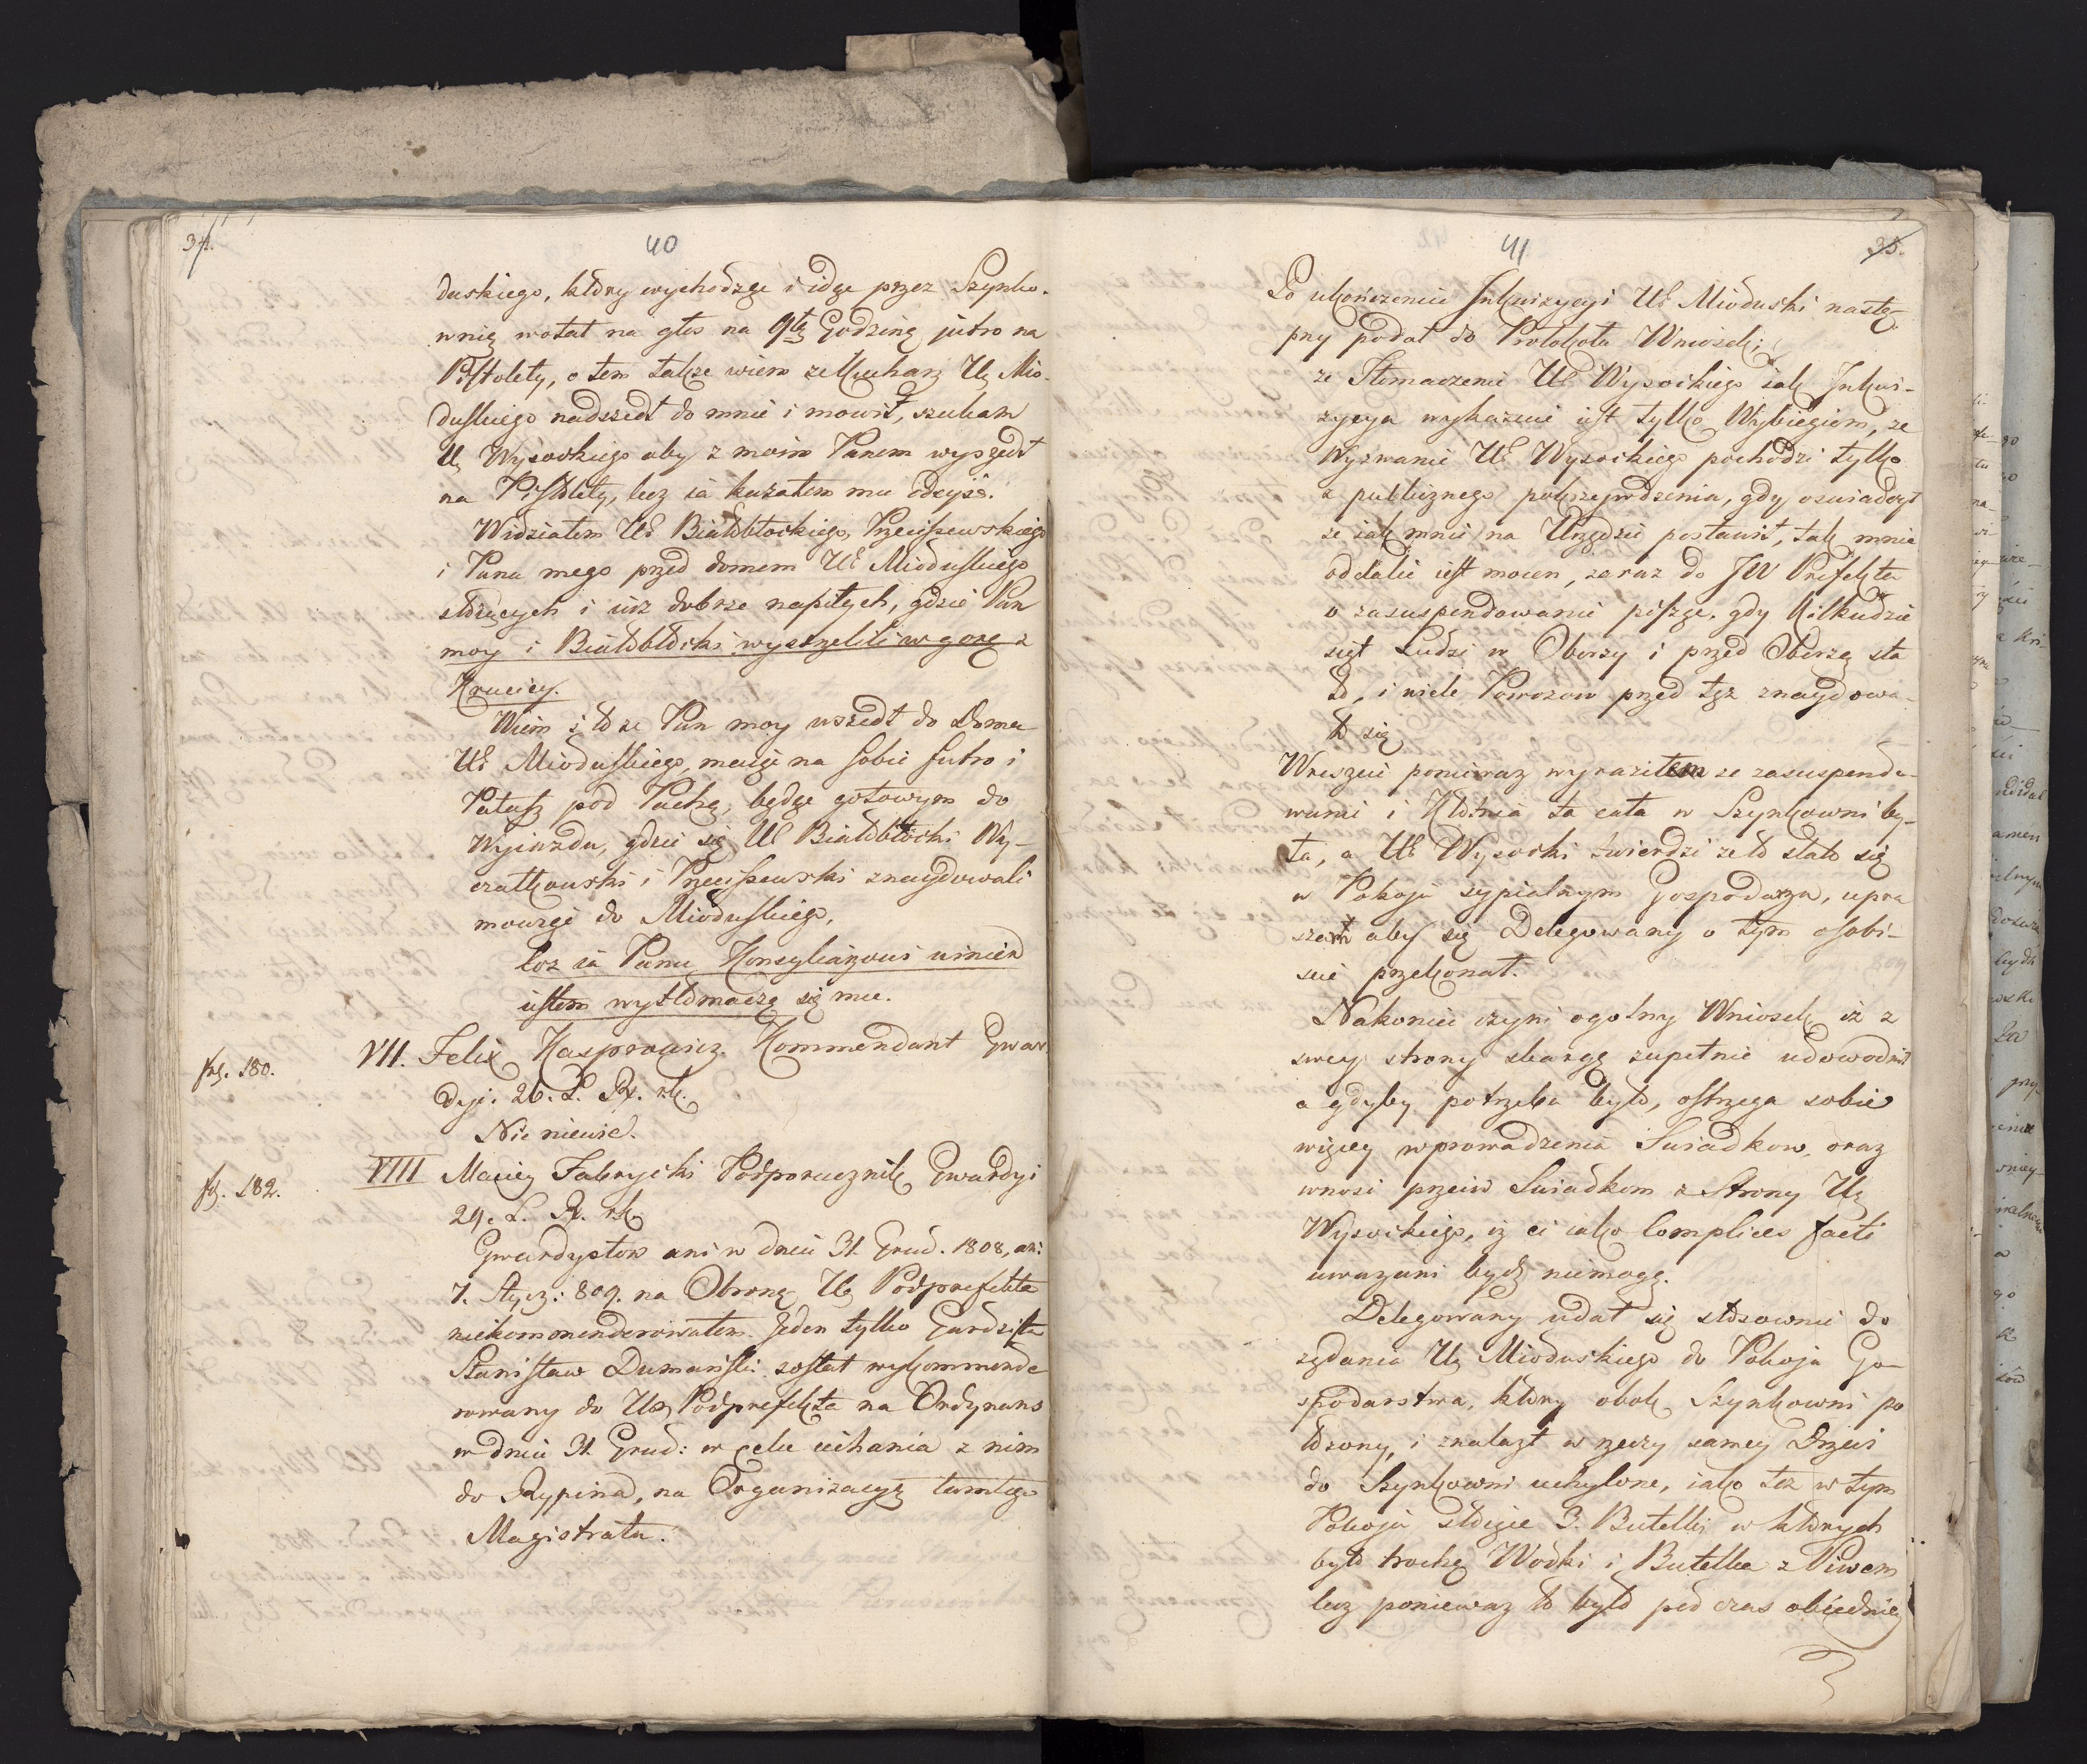 34.
40
duskiego, który wychodząc i idąc przez Szynko-
wnią wołał na głos na 9tą Godzinę jutro na
Pistolety, o tem także wiem że Kucharz Ug Mio-
duskiego nadszedł do mnie i mowił, szukam
Ug Wysockiego aby z moim Panem wyszedł
na Pistolety, lecz ia kazałem mu odeyść.
Widziałem UE Białobłockiego, Przecissewskiego
i Pana mego przed domem UE Mioduskiego
stoiących i iuż dobrze napitych, gdzie Pan
moy i Białobłocki wystrzelili w gorę z
Krucicy.
Wiem i to ze Pan moy wszedł do Domu
UE Mioduskiego, maiąc na sobie futro i
Pałasz pod Pachą, będąc gotowym do
Wyiazdu, gdzie się UE Białobłocki Wy-
czałkowski i Przecissewski znaydowali
mowiąc do Mioduskiego,
coz ia Panu Konsyliarzowi winien
iestem wytłomacz się mie.
fol. 180.
VII. Felix Kasprowicz Kommendant Gwar
dyi. 26. L. R. rk.
Nic niewie.
fol. 182.
VIII Maciey Fabrycki Podporucznik Gwardyi
29. L. R. rk
Gwardystow ani w dniu 31 Grud. 1808, ani
7. Stycz: 809. na Obronę Ug Podprefekta
niekommenderowałem. Jeden tylko Gardzista
Stanisław Dumański został wykommende
rowany do Ug Podprefekta na Ordynans
w dniu 31 Grud: w celu iechania z nim
do Rypina, na Organizacyą tamtego
Magistratu.
41
35.
Po ukończeniu Inkwizycyi UE Mioduski nastę-
pny podał do Protokołu Wniosek:
że Tłomaczenie UE Wysockiego iak Inkwi-
zycya wykazuie iest tylko Wybiegiem, że
Wyzwanie UE Wysockiego pochodzi tylko
z publicznego pokrzywdzenia, gdy oswiadczył
że iak mnie na Urzędzie postawił, tak mnie
oddalić iest mocen, zaraz do JW Prefekta
o zasuspendowanie pisząc, gdy Kilkudzie
siąt Ludzi w Oberzy i przed Oberzą sta
ło, i wiele Powozow przed tąz znaydowa-
ło się
Wreszcie ponieważ wyraziłem ze zasuspendo-
wanie i Kłotnia ta cała w Szynkowni by-
ła, a UE Wysocki twierdzi że to stało się
w Pokoju sypialnym Gospodarza, upra
szał aby się Delegowany o tym osobi-
scie przekonał.
Nakoniec czyni ogolny Wniosek iż z
swey strony skargę zupełnie udowodnił
a gdyby potrzeba było, ostrzega sobie
więcey wprowadzenia Swiadkow, oraz
wnosi przeciw Swiadkom z Strony Ug
Wysockiego, iż ci iako Complices facti
uwazani bydź niemogą.
Delegowany udał się stosownie do
ządania Ug Mioduskiego do Pokoju Go-
spodarstwa, który obok Szynkowni po
łozony, i znalazł w rzeczy samey Drzwi
do Szynkowni uchylone, iako tez w tym
Pokoju stoiące 3. Butelki w których
było trochę Wodki i Butelka z Piwem
lecz ponieważ to było pod czas obiedniey